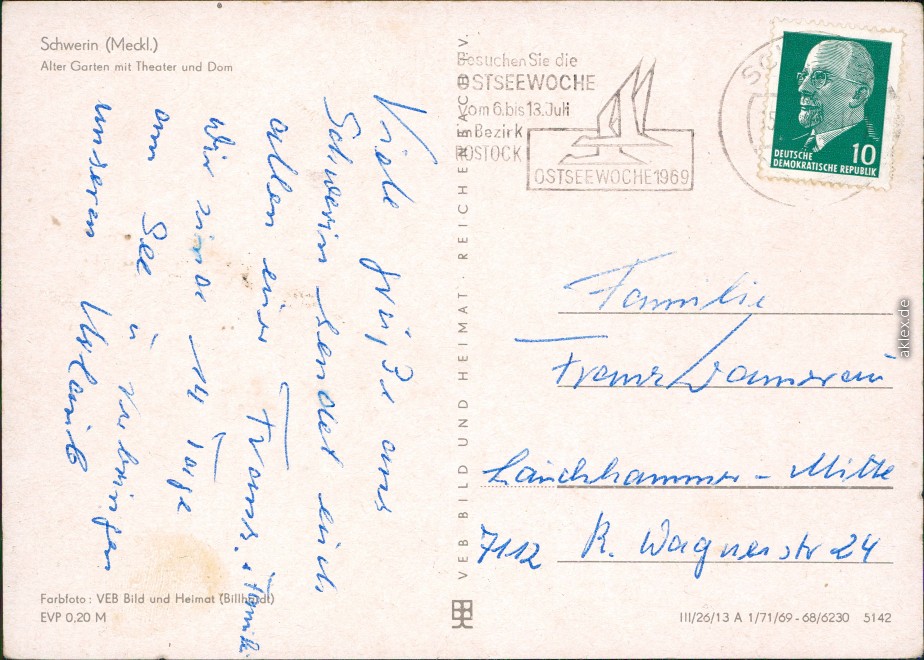 Schwerin (Meckl.)
Alter Garten mit Theater und Dom
Viele Grüße aus
Schwerin sendet euch
allen eur Franz. u Familie
Wir sind 14 Tage
am See u verbringen
unseren Urlaub
Farbfoto: VEB Bild und Heimat (Billhardt)
EVP 0,20 M
VEB BILD UND HEIMAT · REICHENBACH I. V.
Besuchen Sie die
OSTSEEWOCHE
vom 6. bis 13. Juli
im Bezirk
ROSTOCK
OSTSEEWOCHE 1969
10
DEUTSCHE
DEMOKRATISCHE REPUBLIK
Familie
Franz
Lauchhammer - Mitte
7112 R. Wagnerstr 24
III/26/13 A 1/71/69 - 68/6230 5142
aklex.de